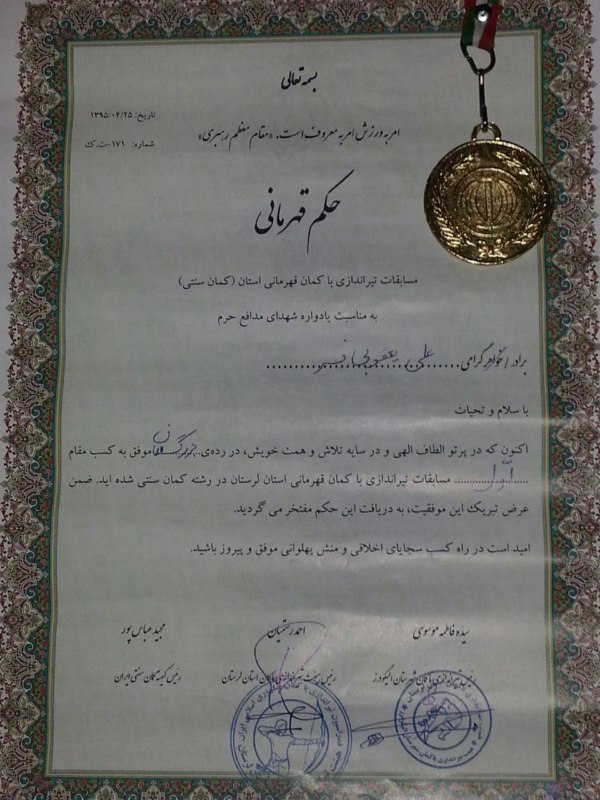 بسمه تعالی
تاریخ: ۱۳۹۵/۰۴/۲۵
امر به ورزش امر به معروف است. «مقام معظم رهبری»
شماره: ۱۷۱-ت.ک
حکم قهرمانی
مسابقات تیراندازی با کمان قهرمانی استان (کمان سنتی)
به مناسبت یادواره شهدای مدافع حرم
برادر / خواهر گرامی علی یعقوبی
با سلام و تحیات
اکنون که در پرتو الطاف الهی و در سایه تلاش و همت خویش، در رده‌ی بزرگسالان موفق به کسب مقام
اول مسابقات تیراندازی با کمان قهرمانی استان لرستان در رشته کمان سنتی شده اید. ضمن
عرض تبریک این موفقیت، به دریافت این حکم مفتخر می گردید.
امید است در راه کسب سجایای اخلاقی و منش پهلوانی موفق و پیروز باشید.
سیده فاطمه موسوی احمد رستمیان مجید عباس پور
رئیس هیئت تیراندازی با کمان شهرستان الیگودرز رئیس هیئت تیراندازی با کمان استان لرستان رئیس کمیته کمان سنتی ایران